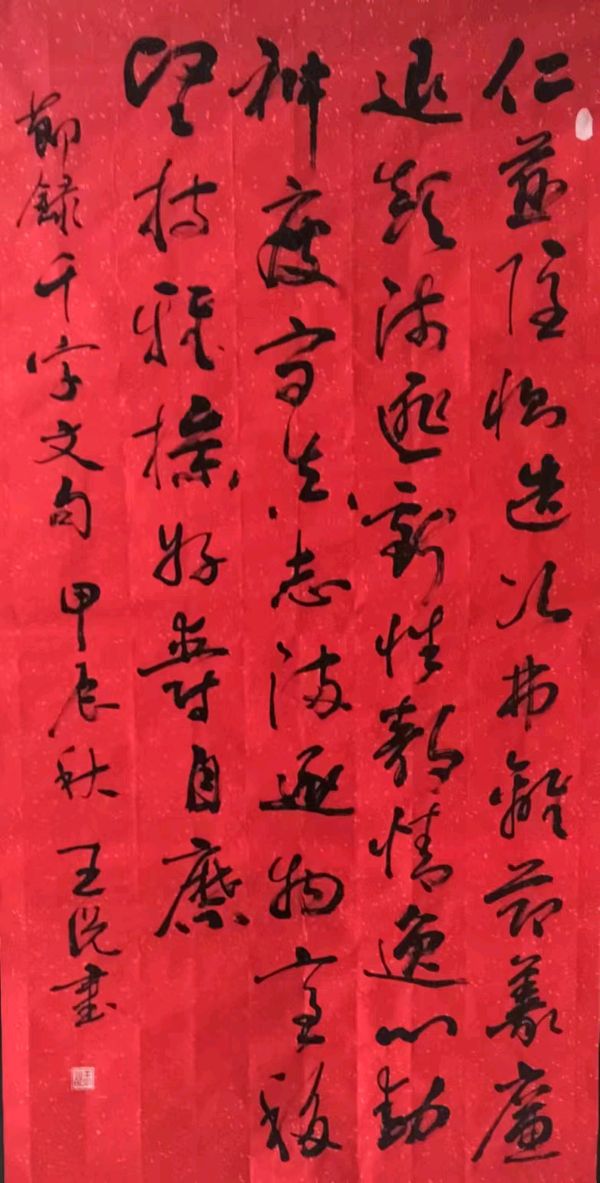 仁慈隱惻造次弗離節義廉
退顛沛匪虧性靜情逸心動
神疲守真志滿逐物意移
堅持雅操好爵自縻
節録千字文句 甲辰秋 王書